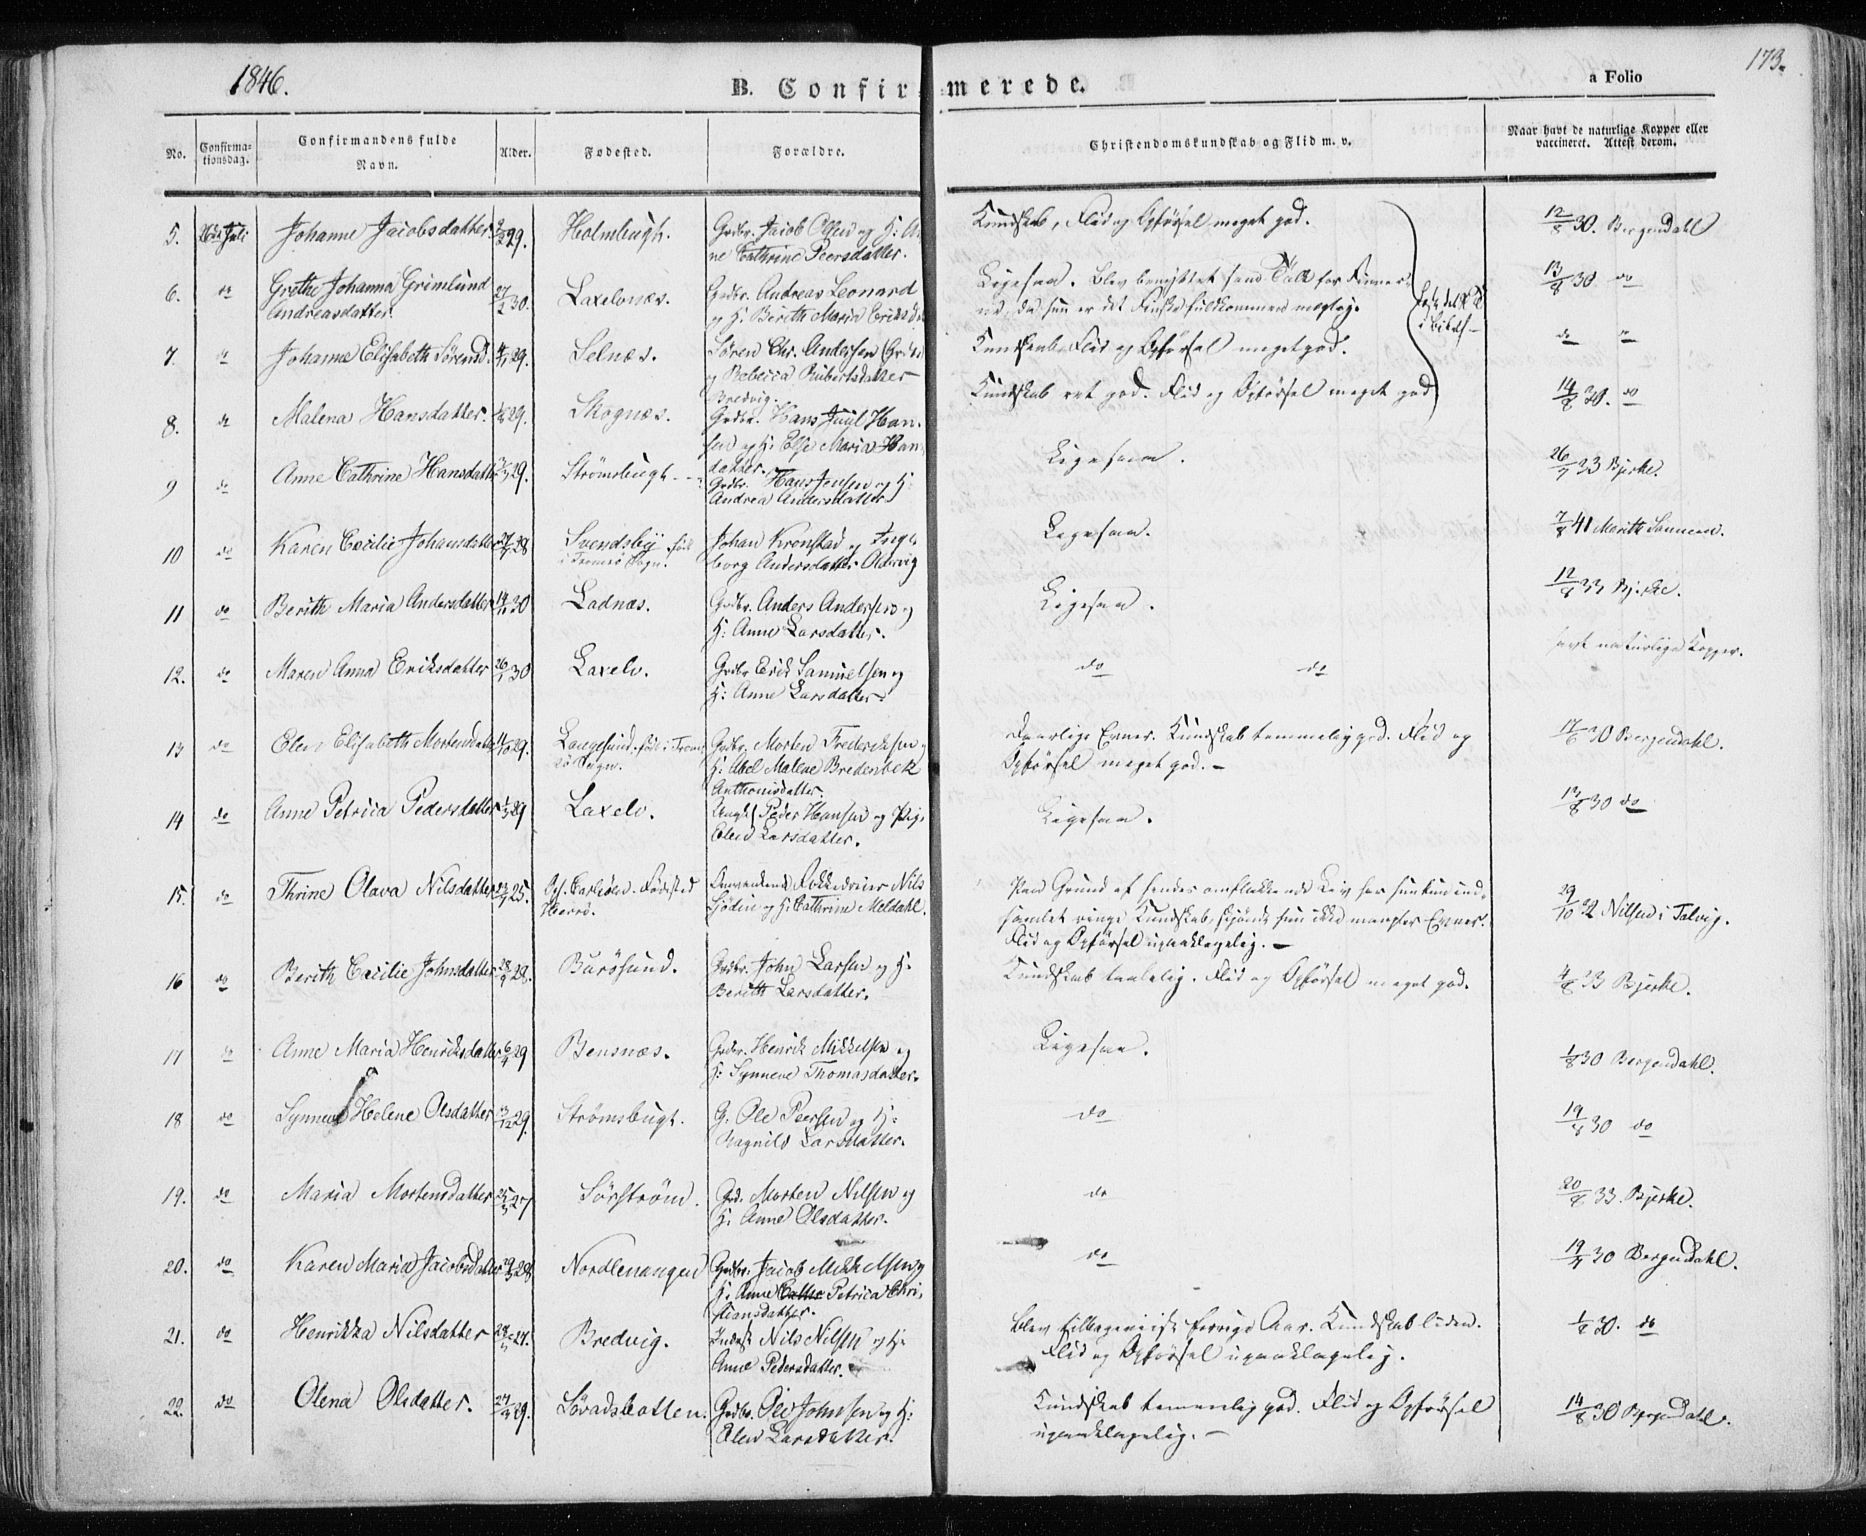 1846.
B. Confirmerede.
a Folio
173.
No.
Confirmationsdag.
Confirmandens fulde Navn.
Alder.
Fødested.
Forældre.
Christendomskundskab og Flid m. v.
Naar havt de naturlige Kopper eller vaccineret. Attest derom.
5. 26de Juli Johanne Jacobsdatter 29. Holmbugt. Gdbr. Jacob Olsen og H: An- Kundskab, Flid og Opførsel meget god. 12/8 30. Bergendahl
ne Cathrine Peersdatter.
6. do Grethe Johanna Grimlund 27/2 30. Laxelvnæs. Gdbr. Andreas Leonard Ligesaa. Blev benyttet som Tolk for Finner- 13/8 30 do
Andreasdatter. og H: Berith Maria Eriksd. ne, da hun er det Finske fuldkommen mægtig.
7. do Johanne Elisabeth Sørensd. 29. Selnæs. Søren Chr. Andersen Kundskab Flid og Opførsel meget god. do do
og Rebecca Rubertsdatter
Bredvig.
8. do Malena Hansdatter. 29. Skognæs. Gdbr. Hans Juul Han- Kundskab ret god. Flid og Opførsel meget god 14/8 30. do
sen og H: Else Maria Han-
datter.
9 do Anne Cathrine Hansdatter 29. Strømsbugt Gdbr. Hans Jensen og H: Ligesaa. 26/7 33 Bjerke.
Andrea Andersdatter
10 do Karen Cecilie Johansdatter 28 Svendsby Johan Kronstad og Inge- Ligesaa. 7/8 41 Marith Sannesen.
i Tromsø Sogn. borg Andersdatter
11 do Berith Maria Andersdatter 30 Ladnæs. Gdbr. Anders Andersen og Ligesaa. 12/8 33 Bjerke.
H: Anne Larsdatter.
12. do Maren Anna Eriksdatter 30 Laxelv. Gdbr Erik Samuelsen og do do havt naturlige Kopper.
H: Anne Larsdatter
13 do Elen Elisabeth Mortensdatter 29. Langesund. født i Trom- Gdbr. Morten Frederiksen og Daarlige Evner. Kundskab temmelig god. Flid og 17/6 30 Bergendahl.
sø Sogn. H: Abel Malene Bredenbek Opførsel meget god.
Anthonisdatter.
14 do Anne Petrica Pedersdatter 29 Laxelv. Ungk. Peder Hansen og Pige Ligesaa. 13/8 30 do
Elen Larsdatter.
15. do Thrine Olava Nilsdatter 25. Fødested Nils Paa Grund af hendes omflakkende Liv har hun kun ind- 29/10 32 Nilsen i Talvig.
og H: Cathrine Meldahl. samlet ringe Kundskab, skjøndt hun ikke mangler Evner.
Flid og Opførsel upaaklagelig.
16 do Berith Cecilie Johnsdatter 28. Burøsund. Gdbr. John Larsen og H: Kundskab taalelig. Flid og Opførsel meget god. 4/8 33 Bjerke.
Berith Larsdatter.
17 do Anne Maria Henriksdatter 29 Bensnæs. Gdbr. Henrik Mikkelsen og Ligesaa. 1/8 30 Bergendahl.
H: Synneve Thomasdatter.
18 do Synneve Helene Olsdatter 3/12 29. Strømsbugt. G. Ole Peersen og H: do 19/8 30 do
Ragnild Larsdatter.
19. do Maria Mortensdatter 27 Sørstrøm. Gd. Morten Nilsen og do 20/8 33. Bjerke.
H: Anne Olsdatter.
20. do Karen Maria Jacobsdatter 28 Nordlenangen Gdbr. Jacob Mikkelsen og do 19/7 30 Bergendahl.
H: Anne Petrica Chri-
stiansdatter.
21. do Henrikka Nilsdatter 27. Bredvig. Indst. Nils Nilsen og H: Blev tilbageviist forrige Aar. Kundskab liden. 1/8 30. do
Anne Pedersdatter. Flid og Opførsel upaaklagelig.
22. do Olena Olsdatter. 29. Gdbr. Ole Johnsen og H: Kundskab temmelig god. Flid og Opførsel 14/8 30 Bergendahl.
Elen Larsdatter. upaaklagelig.